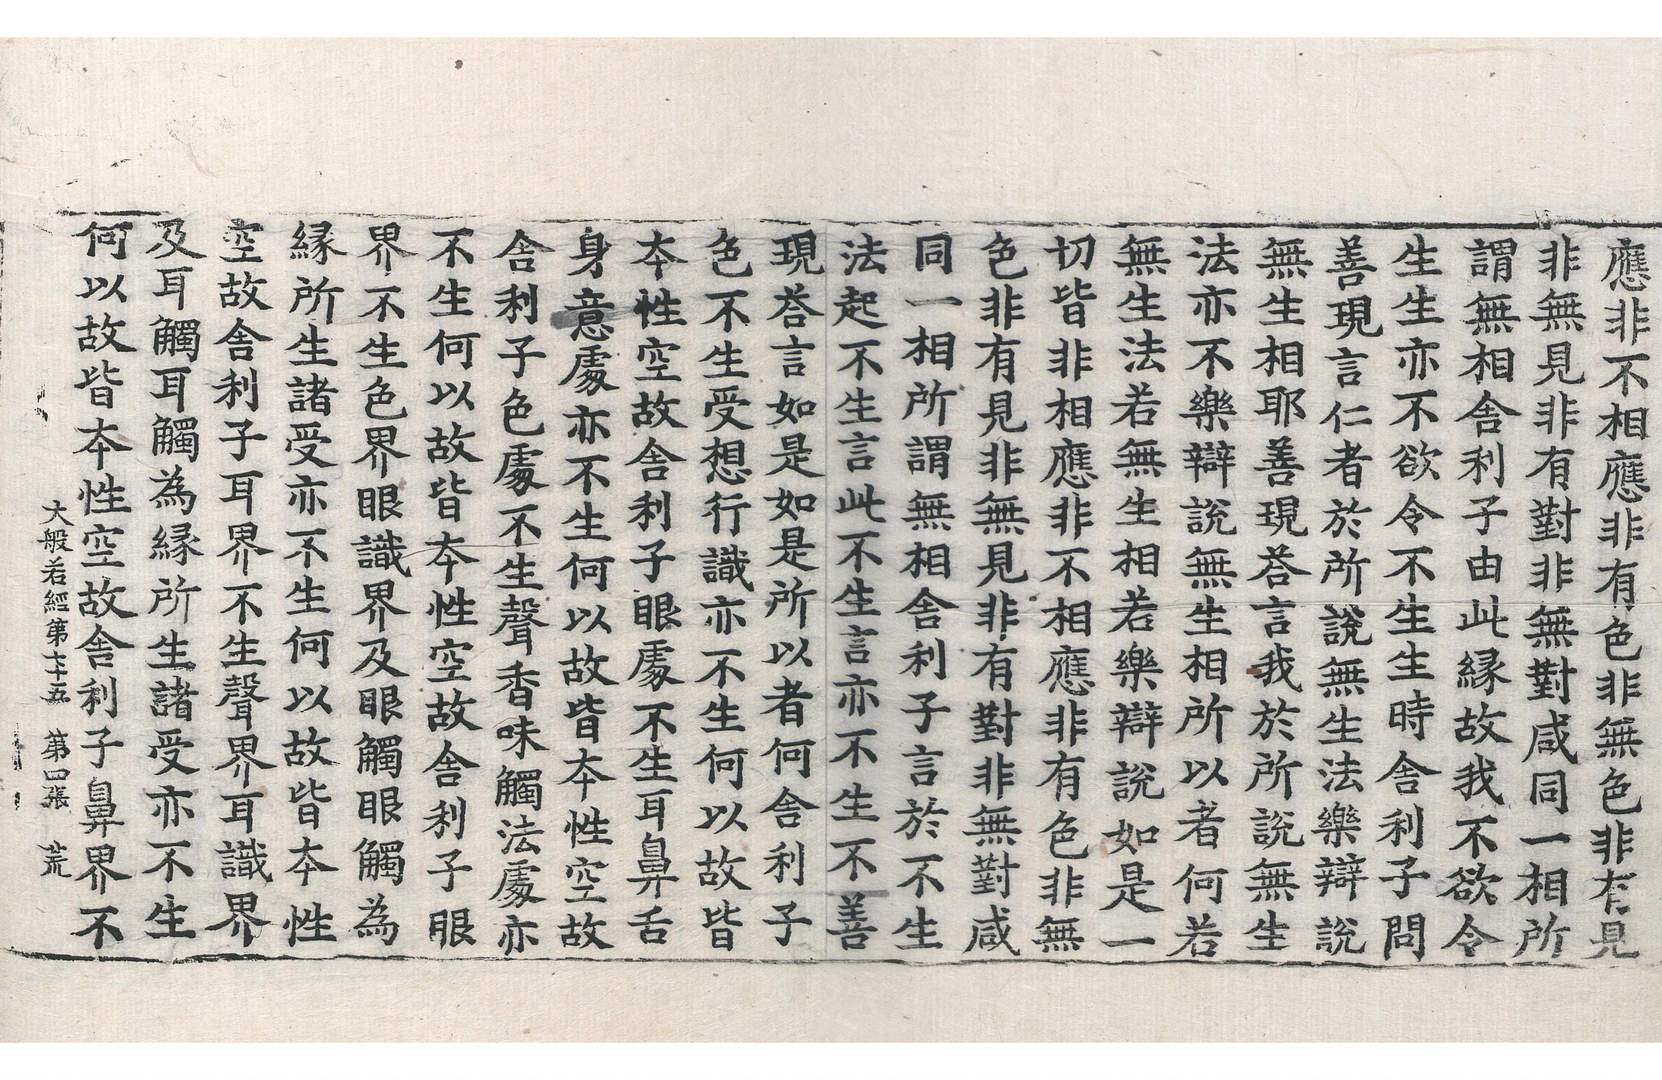 應非不相應非有色非無色非有見
非無見非有對非無對咸同一相所
謂無相舍利子由此縁故我不欲令
生生亦不欲令不生生時舍利子問
善現言仁者於所說無生法樂辯說
無生相耶善現荅言我於所說無生
法亦不樂辯說無生相所以者何若
無生法若無生相若樂辯說如是一
切皆非相應非不相應非有色非無
色非有見非無見非有對非無對咸
同一相所謂無相舍利子言於不生
法起不生言此不生言亦不生不善
現荅言如是如是所以者何舍利子
色不生受想行識亦不生何以故皆
夲性空故舍利子眼處不生耳鼻舌
身意處亦不生何以故皆夲性空故
舍利子色處不生聲香味觸法處亦
不生何以故皆夲性空故舍利子眼
界不生色界眼識界及眼觸眼觸為
縁所生諸受亦不生何以故皆夲性
空故舍利子耳界不生聲界耳識界
及耳觸耳觸為縁所生諸受亦不生
何以故皆夲性空故舍利子鼻界不
大般若經第七十五 第四張 荒